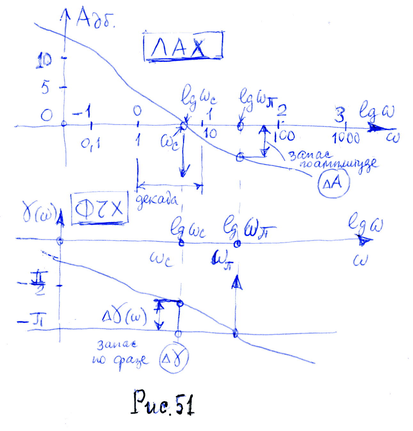 Aдб.
ЛАХ
10
5
0
-1 0 1 2 3 lg ω
lg ωc lg ωπ
0,1 1 10 100 1000 ω
ωc
запас по амплитуде
ΔA
декада
γ(ω) ФЧХ
lg ωc lg ωπ lg ω
ωc ωπ ω
-π/2
Δγ(ω)
-π
запас
по фазе Δγ
Рис. 51